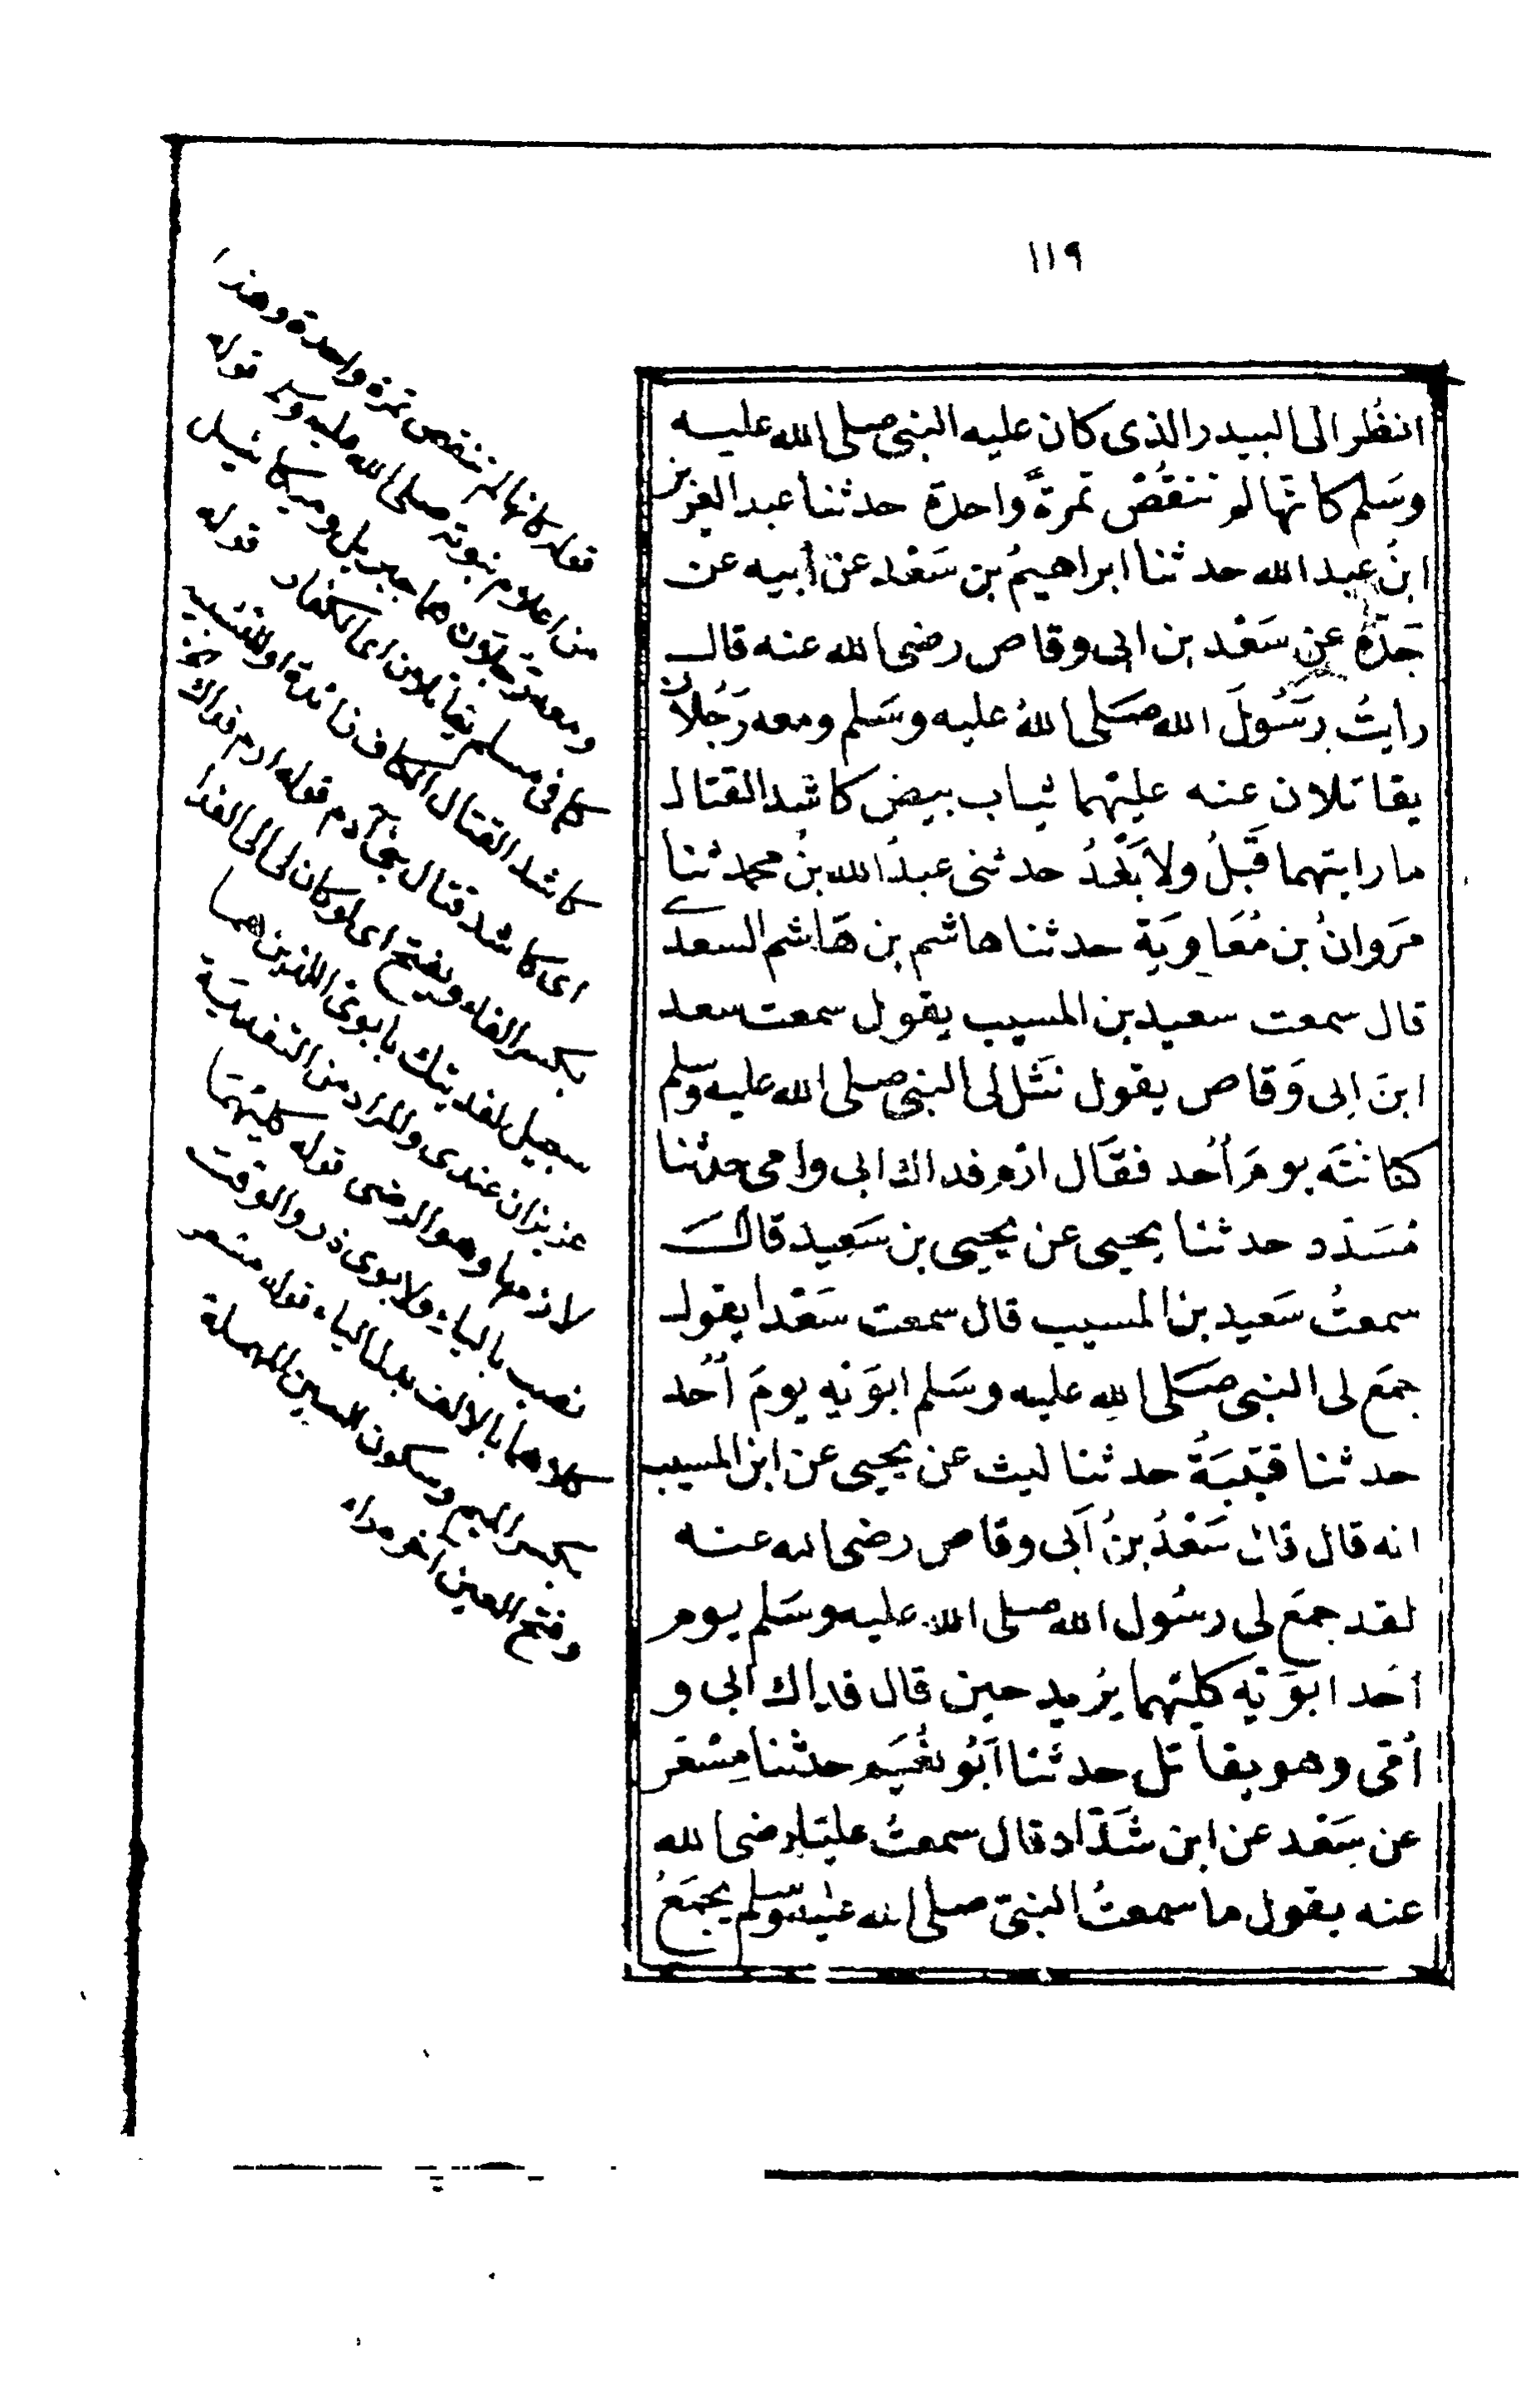 ١١٩
انظُر الى البيدر الذى كان عليه النبى صلى الله عليه
وسَلم كانها لم تنقُصْ تمرةً واحدة حدثنا عبد العزيز
ابنُ عبد الله حدثنا ابراهيمُ بن سَعْد عن أبيه عن
جَدّه عن سَعْد بن ابى وقاص رضى الله عنه قال
رأيتُ رَسُولَ الله صَلى اللهُ عليه وسَلم ومعه رَجُلان
يقاتلان عنه عليهما ثياب بيض كاشد القتال
ما رايتهما قَبلُ ولا بَعْدُ حدثنى عبدُ الله بنُ محمد ثنا
مَروانُ بن مُعَاوِيَة حدثنا هاشم بن هَاشم السعدى
قال سمعت سعيد بن المسيب يقول سمعت سعد
ابنَ ابى وَقاص يقول نَثَل لى النبى صلى الله عليه وسلم
كنانتَه يومَ أُحد فقَال ارْم فداك ابى وامى حدثنا
مُسَدّد حدثنا يحيى عن يحيى بن سَعِيد قالَ
سمعتُ سَعيد بن المسيب قال سمعت سَعْدا يقول
جمَع لى النبى صَلى الله عليه وسَلم ابوَيْه يومَ أُحُد
حدثنا قتيبَةُ حدثنا ليث عن يحيى عن ابن المسيب
انه قال قال سَعْدُ بنُ اَبى وقاص رضى الله عنه
لقد جمَع لى رسُول الله صلى الله عليه وسَلم يوم
أحُد ابوَيْه كليهما يُريد حين قال فداك ابى و
أُمّى وهو يقاتل حدثنا اَبُو نُعَيم حدثنا مِسْعَر
عن سَعْد عن ابن شَدّاد قال سمعتُ عليّا رضى الله
عنه يقول ما سمعتُ النبىّ صلى الله عليه وسلم يجمَعُ
قوله كانها لم تنقص تمرة واحدة وهذا
من اعلام نبوته صلى الله عليه وسلم قوله
ومعه رجلان هما جبريل وميكائيل
كما فى مسلم يقاتلان اى الكفار قوله
كاشد القتال الكاف زائدة او للتشبيه
اى كاشد قتال بنى آدم قوله ارم فداك
بكسر الفاء ويفتح اى لو كان لى الى الفدا
سبيل لفديتك بابوىّ اللذين هما
عزيزان عندى والمراد من التفدية
لازمها وهو الرضى قوله كليهما
نصب بالياء ولابوى ذر والوقت
كلاهما بالالف بدل الياء قوله مسعر
بكسر الميم وسكون السين المهملة
وفتح العين اخره راء